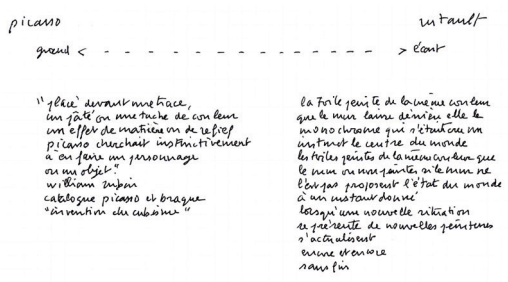 picasso
rutault
grand < - - - - - - - - - - - - - > écart
"placé devant une trace,
un pâté ou une tache de couleur
un effet de matière ou de relief
picasso cherchait instinctivement
à en faire un personnage
ou un objet."
william rubin
catalogue picasso et braque
"invention du cubisme"
la toile peinte de la même couleur
que le mur laisse derrière elle le
monochrome qui s'étant cru un
instant le centre du monde
les toiles peintes de la même couleur que
le mur ou non peintes si le mur ne
l'est pas proposent l'état du monde
à un instant donné
lorsqu'une nouvelle situation
se présente de nouvelles peintures
s'actualisent
encore et encore
sans fin